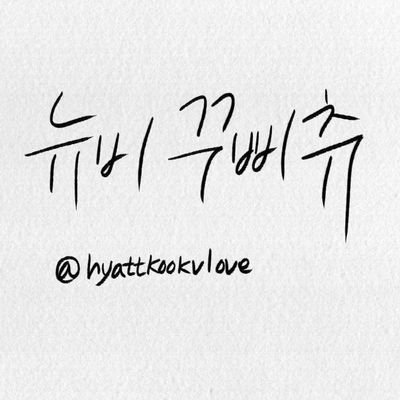 뉴비 꾸삐츄
@hyattkookvlove